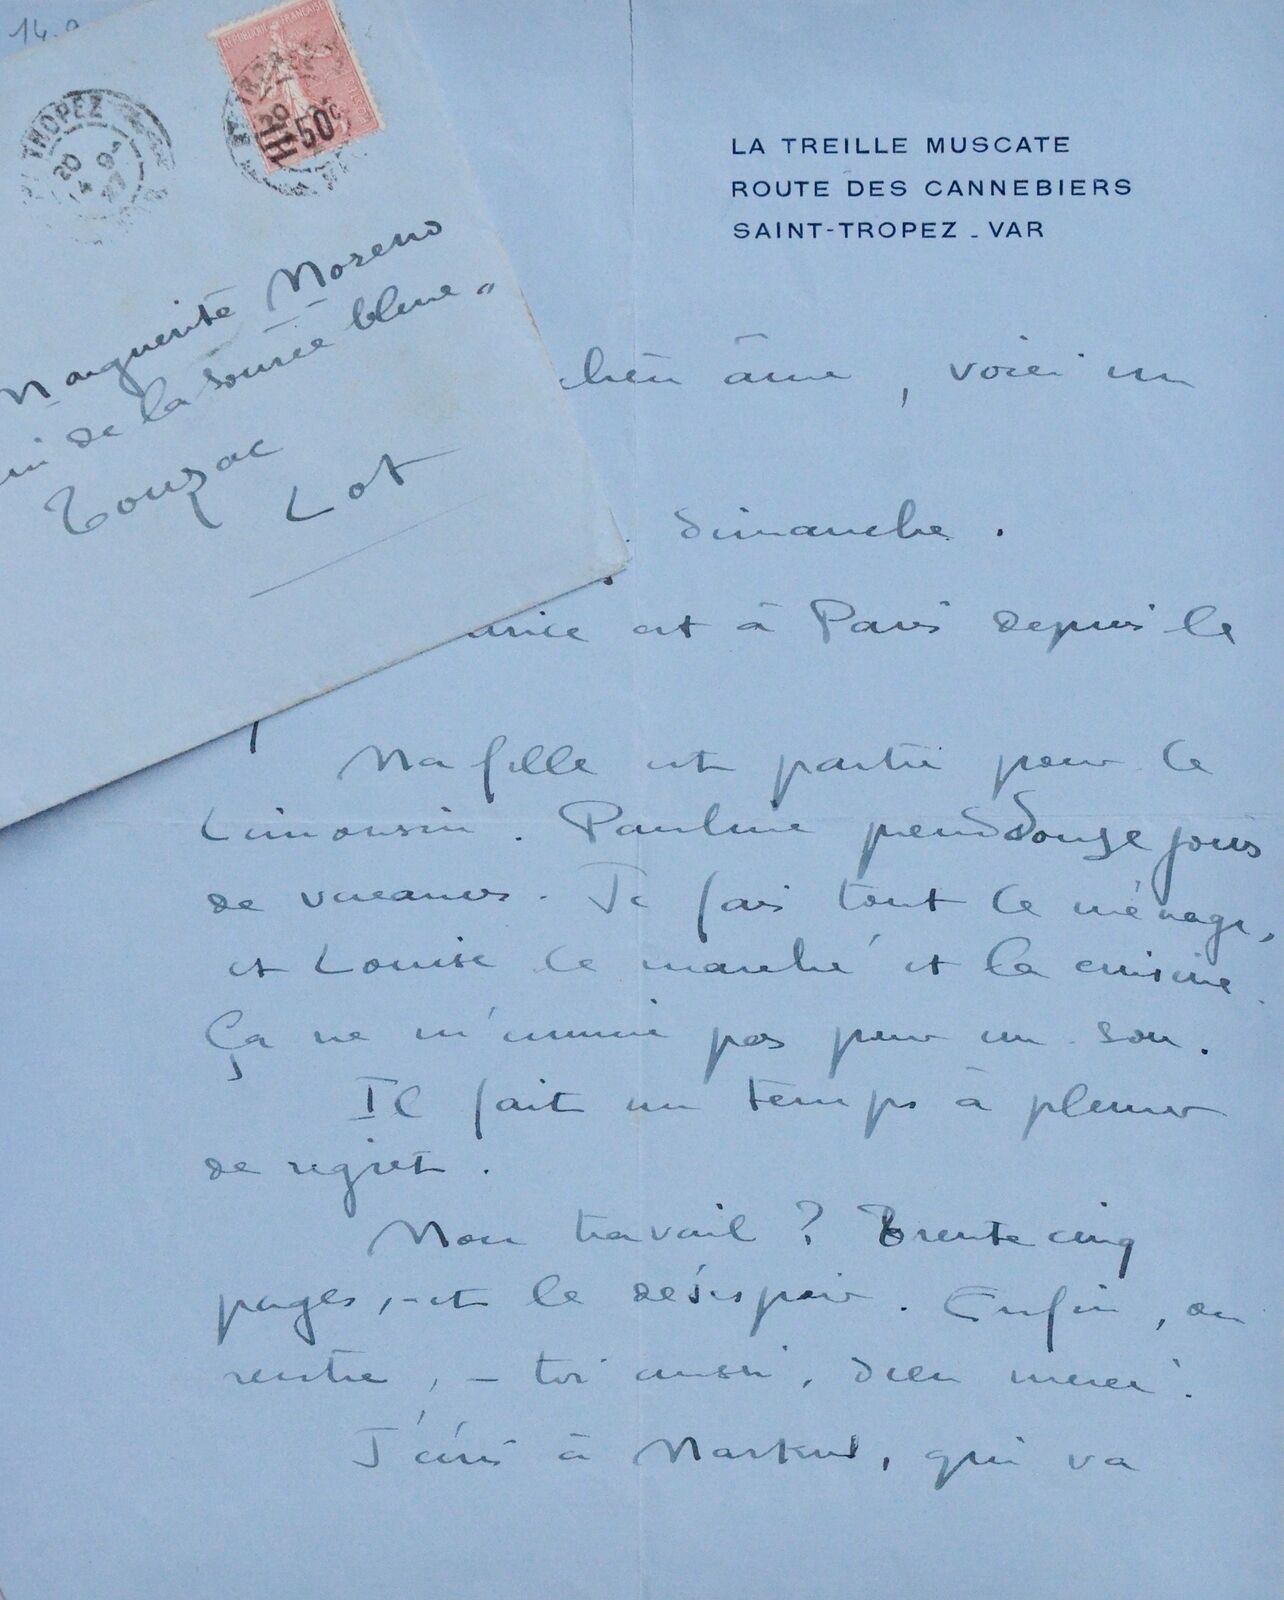 14.9
RÉPUBLIQUE FRANÇAISE
50c
TROPEZ
20
4 9
27
Marguerite Moreno
de la source bleue"
Touzac
Lot
LA TREILLE MUSCATE
ROUTE DES CANNEBIERS
SAINT-TROPEZ - VAR
chère âme, voici un
dimanche.
est à Paris depuis le
Ma fille est partie pour le
Limousin. Pauline prend douze jours
de vacances. Je fais tout le ménage,
et Louise le marché et la cuisine.
Ça ne m'ennuie pas pour un sou.
Il fait un temps à pleurer
de regret.
Mon travail ? Trente cinq
pages, - et le désespoir. Enfin, on
rentre, - toi aussi, dieu merci.
J'écris à Markus, qui va